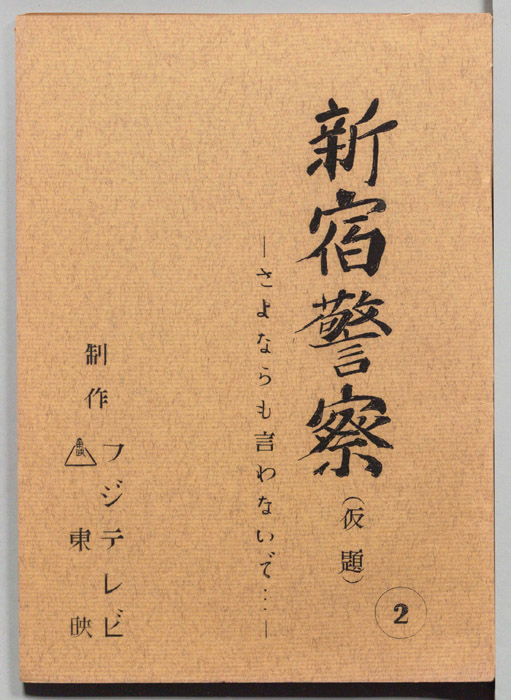 新宿警察(仮題)
②
―さよならも言わないで…―
制作 フジテレビ
東映